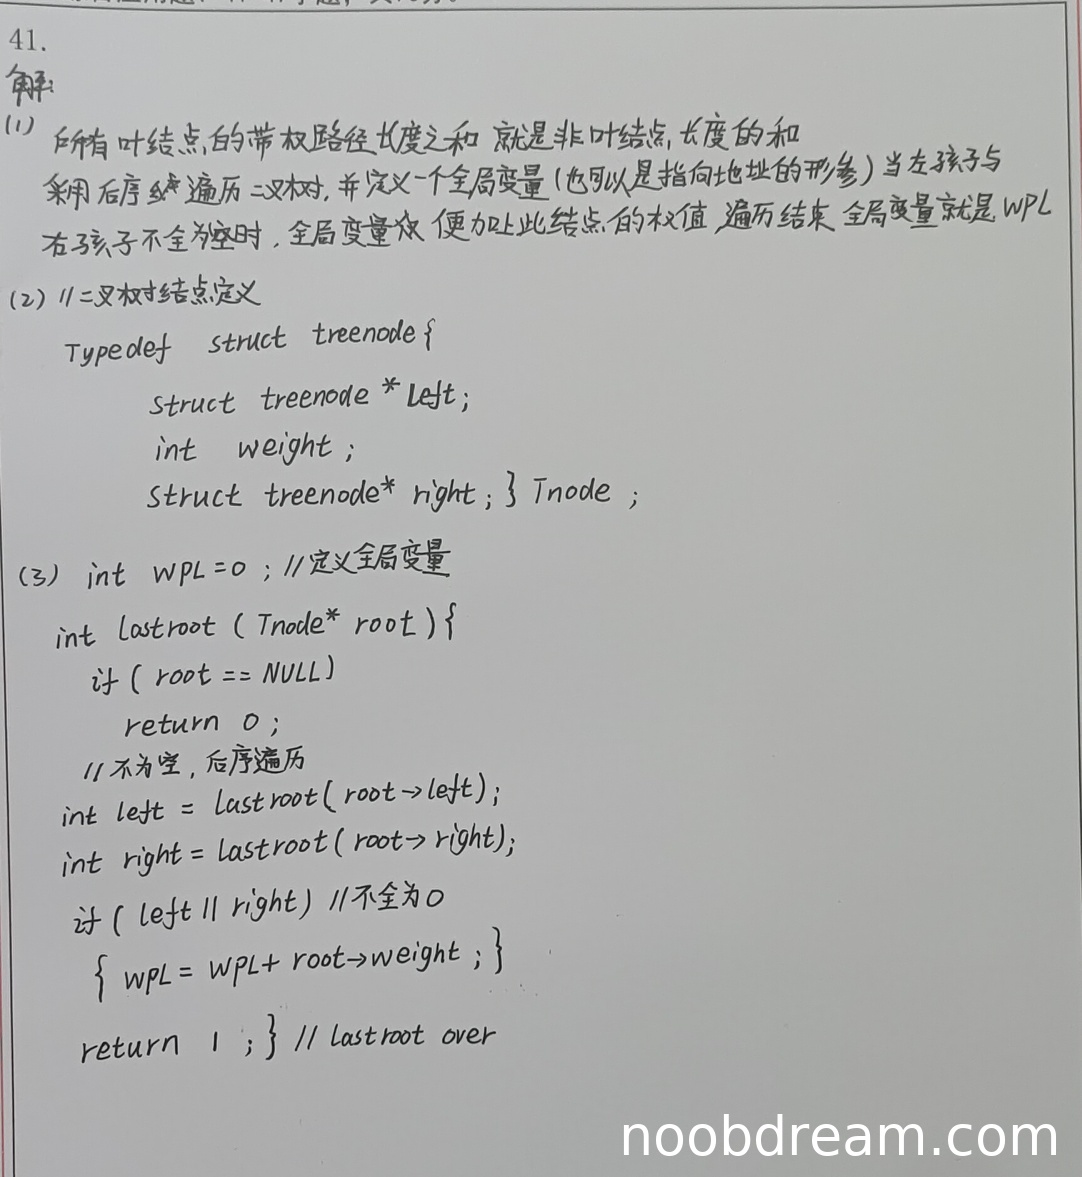 41.
解:
(1) 所有叶结点的带权路径长度之和 就是非叶结点长度的和
采用后序 遍历二叉树, 并定义一个全局变量(也可以是指向地址的形参)当左孩子与
右孩子不全为空时, 全局变量 便加上此结点的权值,遍历结束 全局变量就是WPL
(2) //二叉树结点定义
Typedef struct treenode{
struct treenode *left;
int weight;
struct treenode* right; } Tnode ;
(3) int WPL=0 ; //定义全局变量
int lastroot ( Tnode* root ){
if ( root == NULL)
return 0 ;
//不为空, 后序遍历
int left = lastroot( root→left);
int right = lastroot( root→right);
if ( left || right) //不全为0
{ WPL = WPL+ root→weight ; }
return 1 ; } // lastroot over
noobdream.com